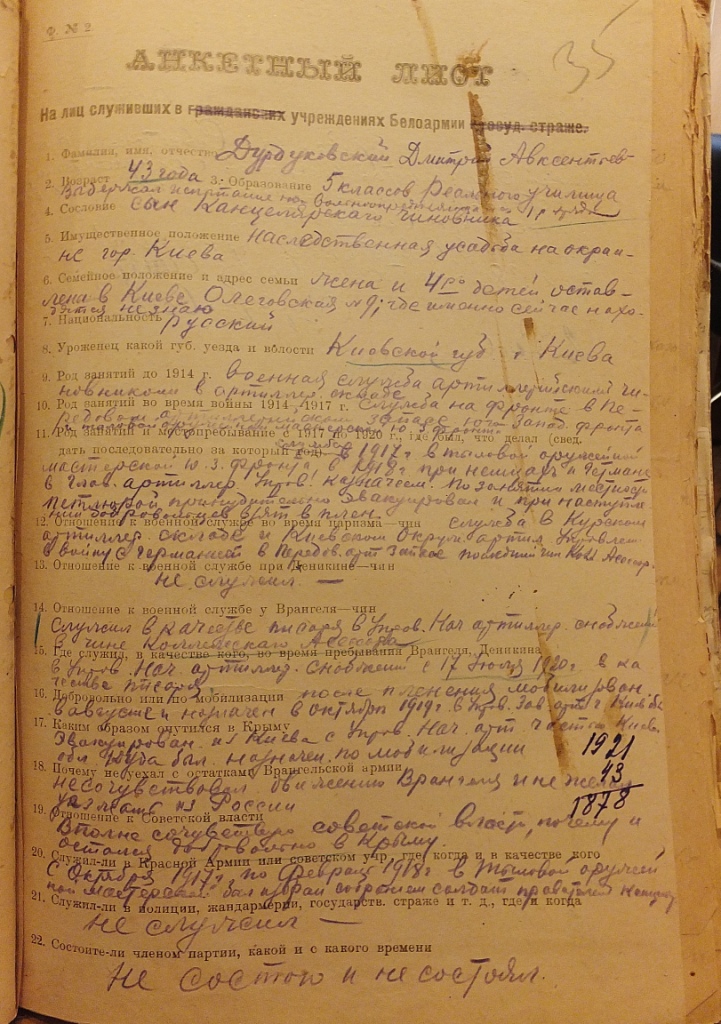 Ф. № 2
35
АНКЕТНЫЙ ЛИСТ
На лиц служивших в гражданских учреждениях Белоармии и госуд. страже.
1. Фамилия, имя, отчество Дурдуковский Дмитрий Авксентьев
2. Возраст 43 года 3. Образование 5 классов Реального училища
выдержал испытание на 1 разряда
4. Сословие сын Канцелярского чиновника
5. Имущественное положение наследственная усадьба на окраи-
не гор. Киева
6. Семейное положение и адрес семьи жена и 4ро детей остав-
лены в Киеве Олеговская №9, где именно сейчас нахо-
дятся не знаю
7. Национальность Русский
8. Уроженец какой губ. уезда и волости Киевской губ. г. Киева
9. Род занятий до 1914 г. военная служба артиллерийским чи-
новником в артиллер. складе
10. Род занятий во время войны 1914—1917 г. служба на фронте в Пе-
редовом артиллерийском запасе Юго Запад. фронта
11. Род занятий и местопребывание с 1917 по 1920 г., где был, что делал (свед.
дать последовательно за который год) служба в 1917 г. в тыловой оружейной
мастерской Ю. З. фронта, в 1918 г. при немцах и Гетмане
в Глав. артиллер. Упров. Казначеем. По занятии местности
Петлюрой принудительно эвакуирован и при наступле-
нии добровольцев взят в плен.
12. Отношение к военной службе во время царизма—чин служба в Курском
артиллер. складе и Киевском Окружн. артил. Управлен.
в войну с Германией в Передов. арт Запасе последний чин Кол. Асессор.
13. Отношение к военной службе при Деникине—чин
не служил —
14. Отношение к военной службе у Врангеля—чин
Служил в качестве писаря в Упров. Нач артиллер. снабжений
в чине Коллежскаго Асессора
15. Где служил, в качестве кого, во время пребывания Врангеля, Деникина
в Упров. Нач. артиллер. снабжений с 17 Июля 1920 г. в ка-
честве писаря.
16. Добровольно или по мобилизации после пленения мобилизирован
в августе и назначен в октябре 1919 г. в Упров. Зав. арт. ч.
17. Каким образом очутился в Крыму
Эвакуирован из Киева с Упров. Нач. арт. части Киевс.
обл. куда был назначен по мобилизации
1921
43
1878
18. Почему не уехал с остатками Врангельской армии
несочувствовал движению Врангеля и не желал
уезжать из России
19. Отношение к Советской власти
Вполне сочувствую советской власти, почему и
остался добровольно в Крыму.
20. Служил-ли в Красной Армии или советском учр., где когда и в качестве кого
С Октября 1917 г. по Февраль 1918 г. в тыловой оружей-
ной мастерской был избран собранием солдат
21. Служил-ли в полиции, жандармерии, государств. страже и т. д., где и когда
не служил —
22. Состоите-ли членом партии, какой и с какого времени
не состою и не состоял.